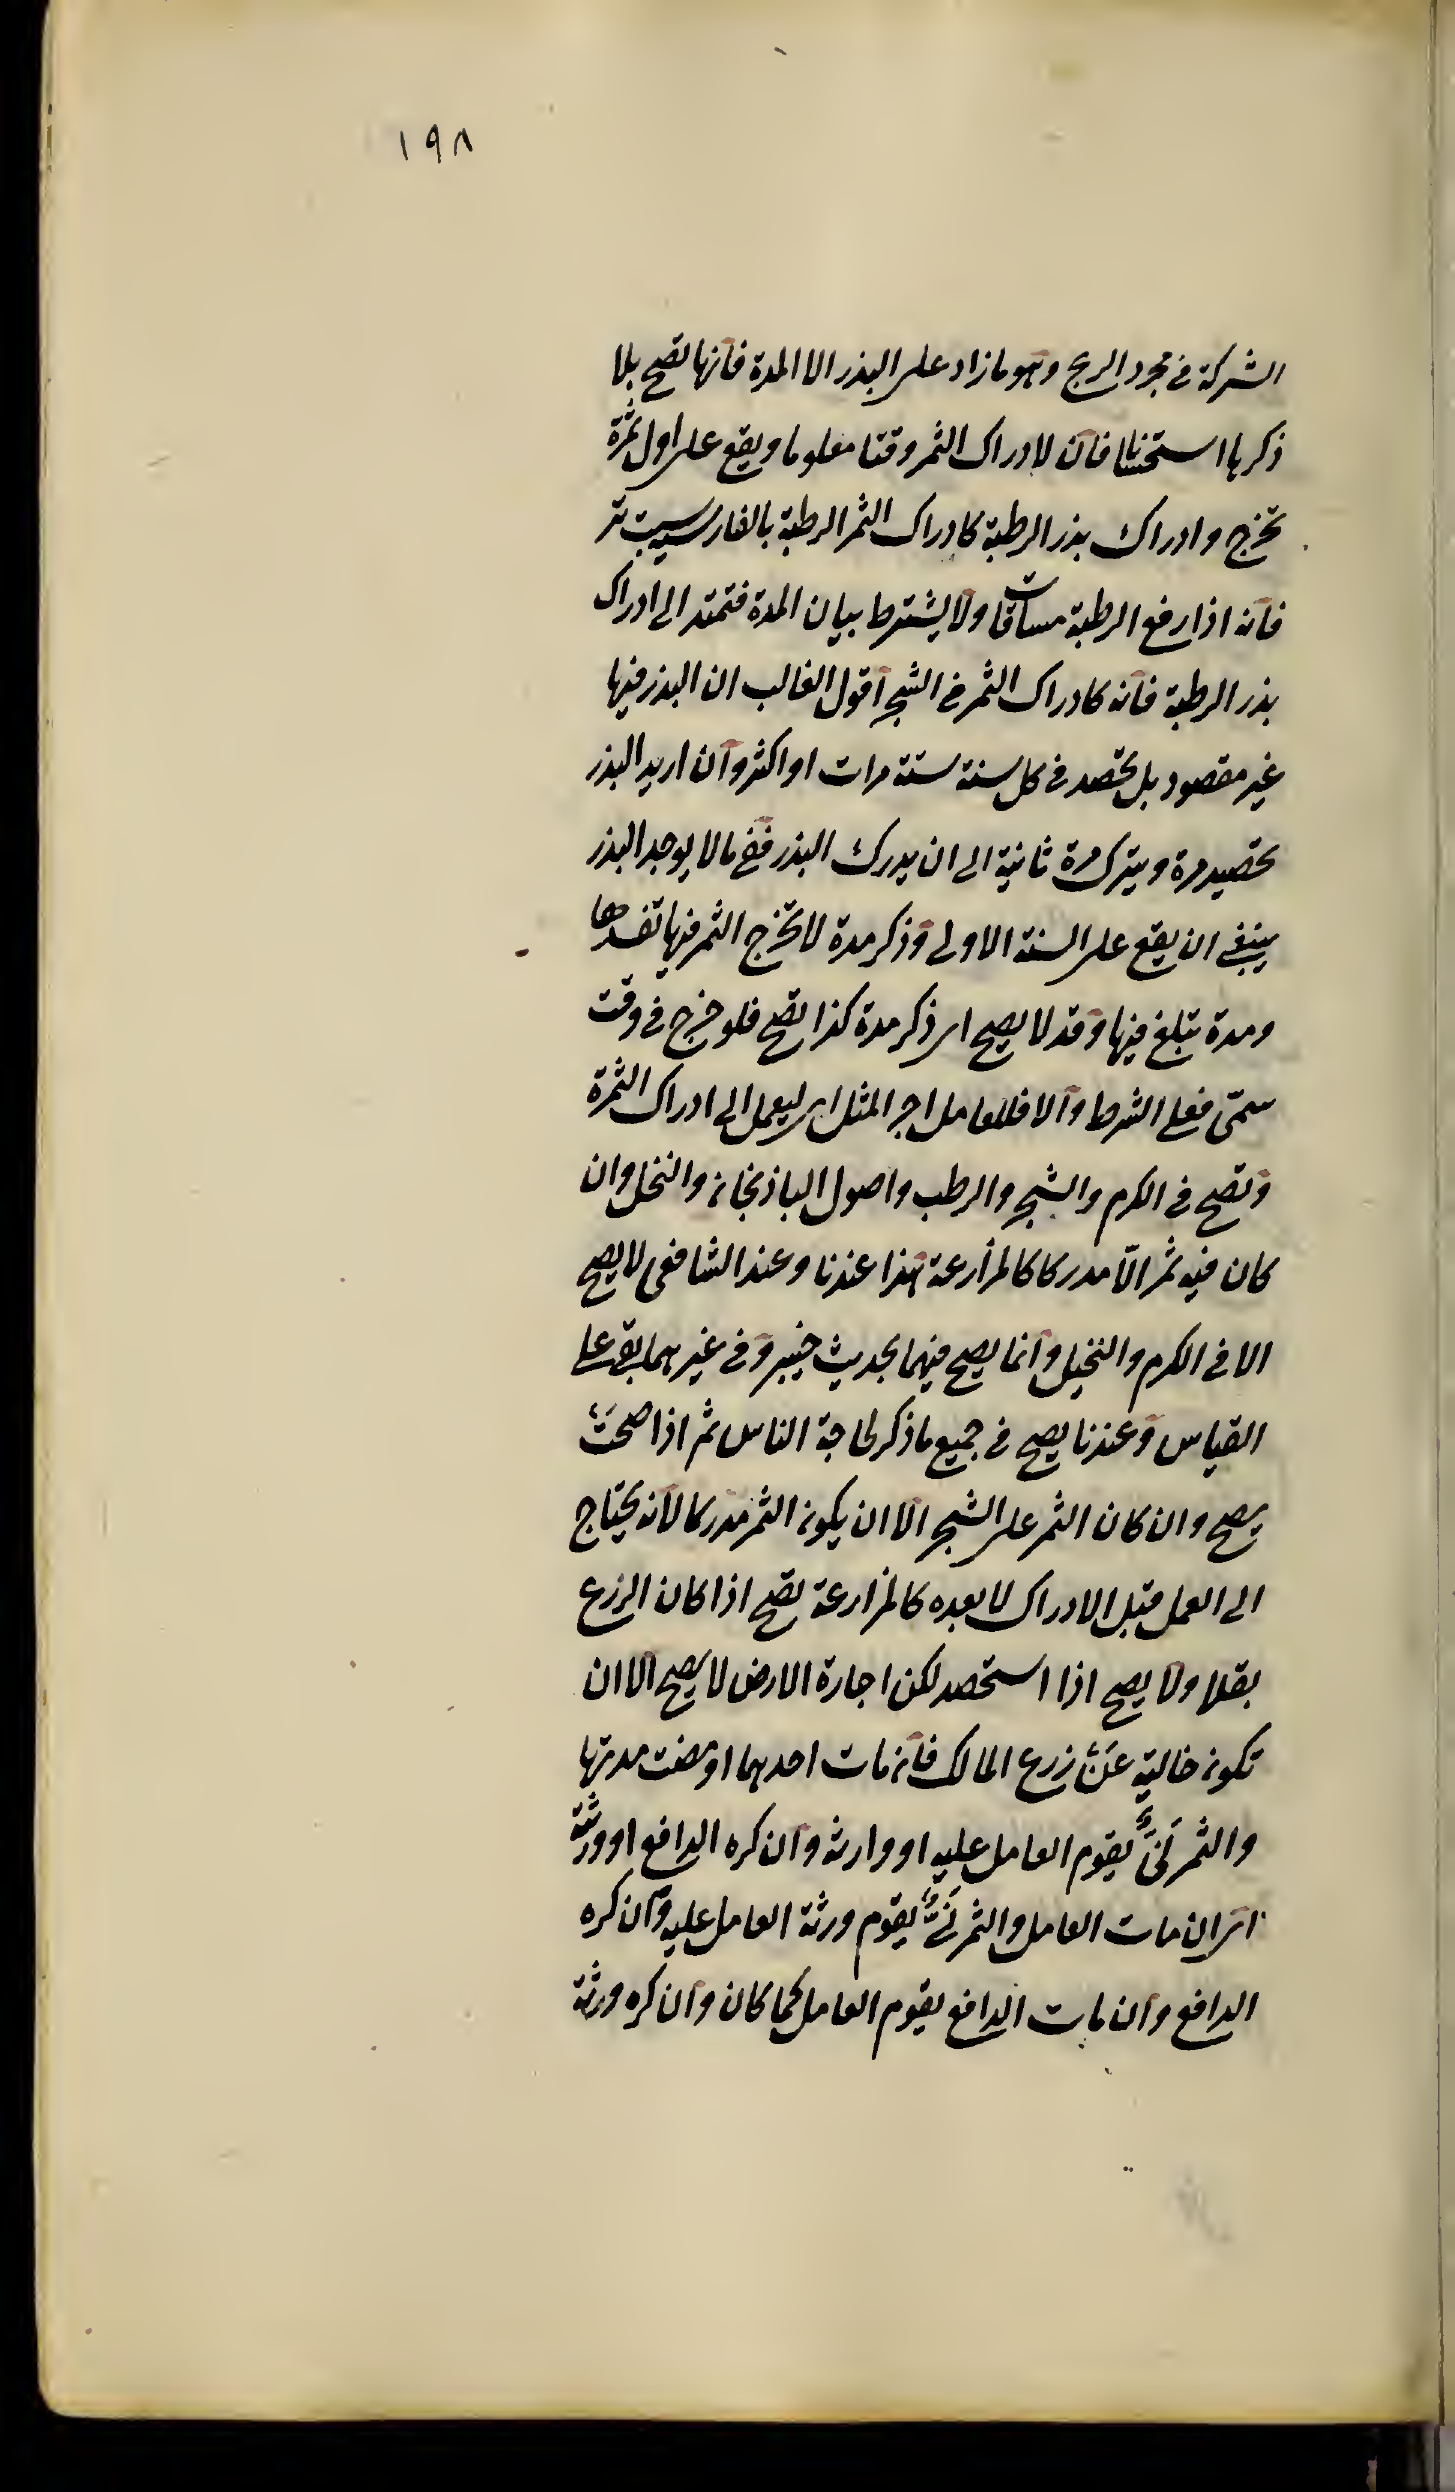 ١٩٨
الشركة في مجرد الربح وهو ما زاد على البذر الا المدة فانها تصح بلا
ذكرها استحسانا فان لادراك الثمر وقتا معلوما ويقع على اول ثمرة
تخرج وادراك بذر الرطبة كادراك الثمر الرطبة بالفارسية سپست تر
فانه اذا رفع الرطبة مساقات ولا يشترط بيان المدة فتمتد الى ادراك
بذر الرطبة فانه كادراك الثمر في الشجر اقول الغالب ان البذر فيها
غير مقصود بل يحصد في كل سنة ستة مرات او اكثر وان اريد البذر
يحصيد مرة ويترك مرة ثانية الى ان يدرك البذر ففي ما لا يوجد البذر
ينبغي ان يقع على السنة الاولى وذكر مدة لا تخرج الثمر فيها تفسدها
ومدة تبلغ فيها وقد لا يصح اى ذكر مدة كذا تصح فلو خرج في وقت
سمّى فعلى الشرط والا فللعامل اجر المثل اى ليعمل الى ادراك الثمرة
وتصح في الكرم والشجر والرطب واصول الباذنجان والنخل وان
كان فيه ثمر الّا مدركا كالمزارعة هذا عندنا وعند الشافعى لا يصح
الا في الكرم والنخيل وانما يصح فيهما بحديث خيبر وفي غيرهما بقى على
القياس وعندنا يصح في جميع ما ذكر لحاجة الناس ثم اذا صحت
يصح وان كان الثمر على الشجر الا ان يكون الثمر مدركا لانه يحتاج
الى العمل قبل الادراك لا بعده كالمزارعة تصح اذا كان الزرع
بقلا ولا يصح اذا استحصد لكن اجارة الارض لا يصح الا ان
تكون خالية عن زرع المالك فان مات احدهما او مضت مدتها
والثمر نىّ يقوم العامل عليه او وارثه وان كره الدافع او ورثته
اى ان مات العامل والثمر نىّ يقوم ورثة العامل عليه وان كره
الدافع وان مات الدافع يقوم العامل كما كان وان كره ورثة